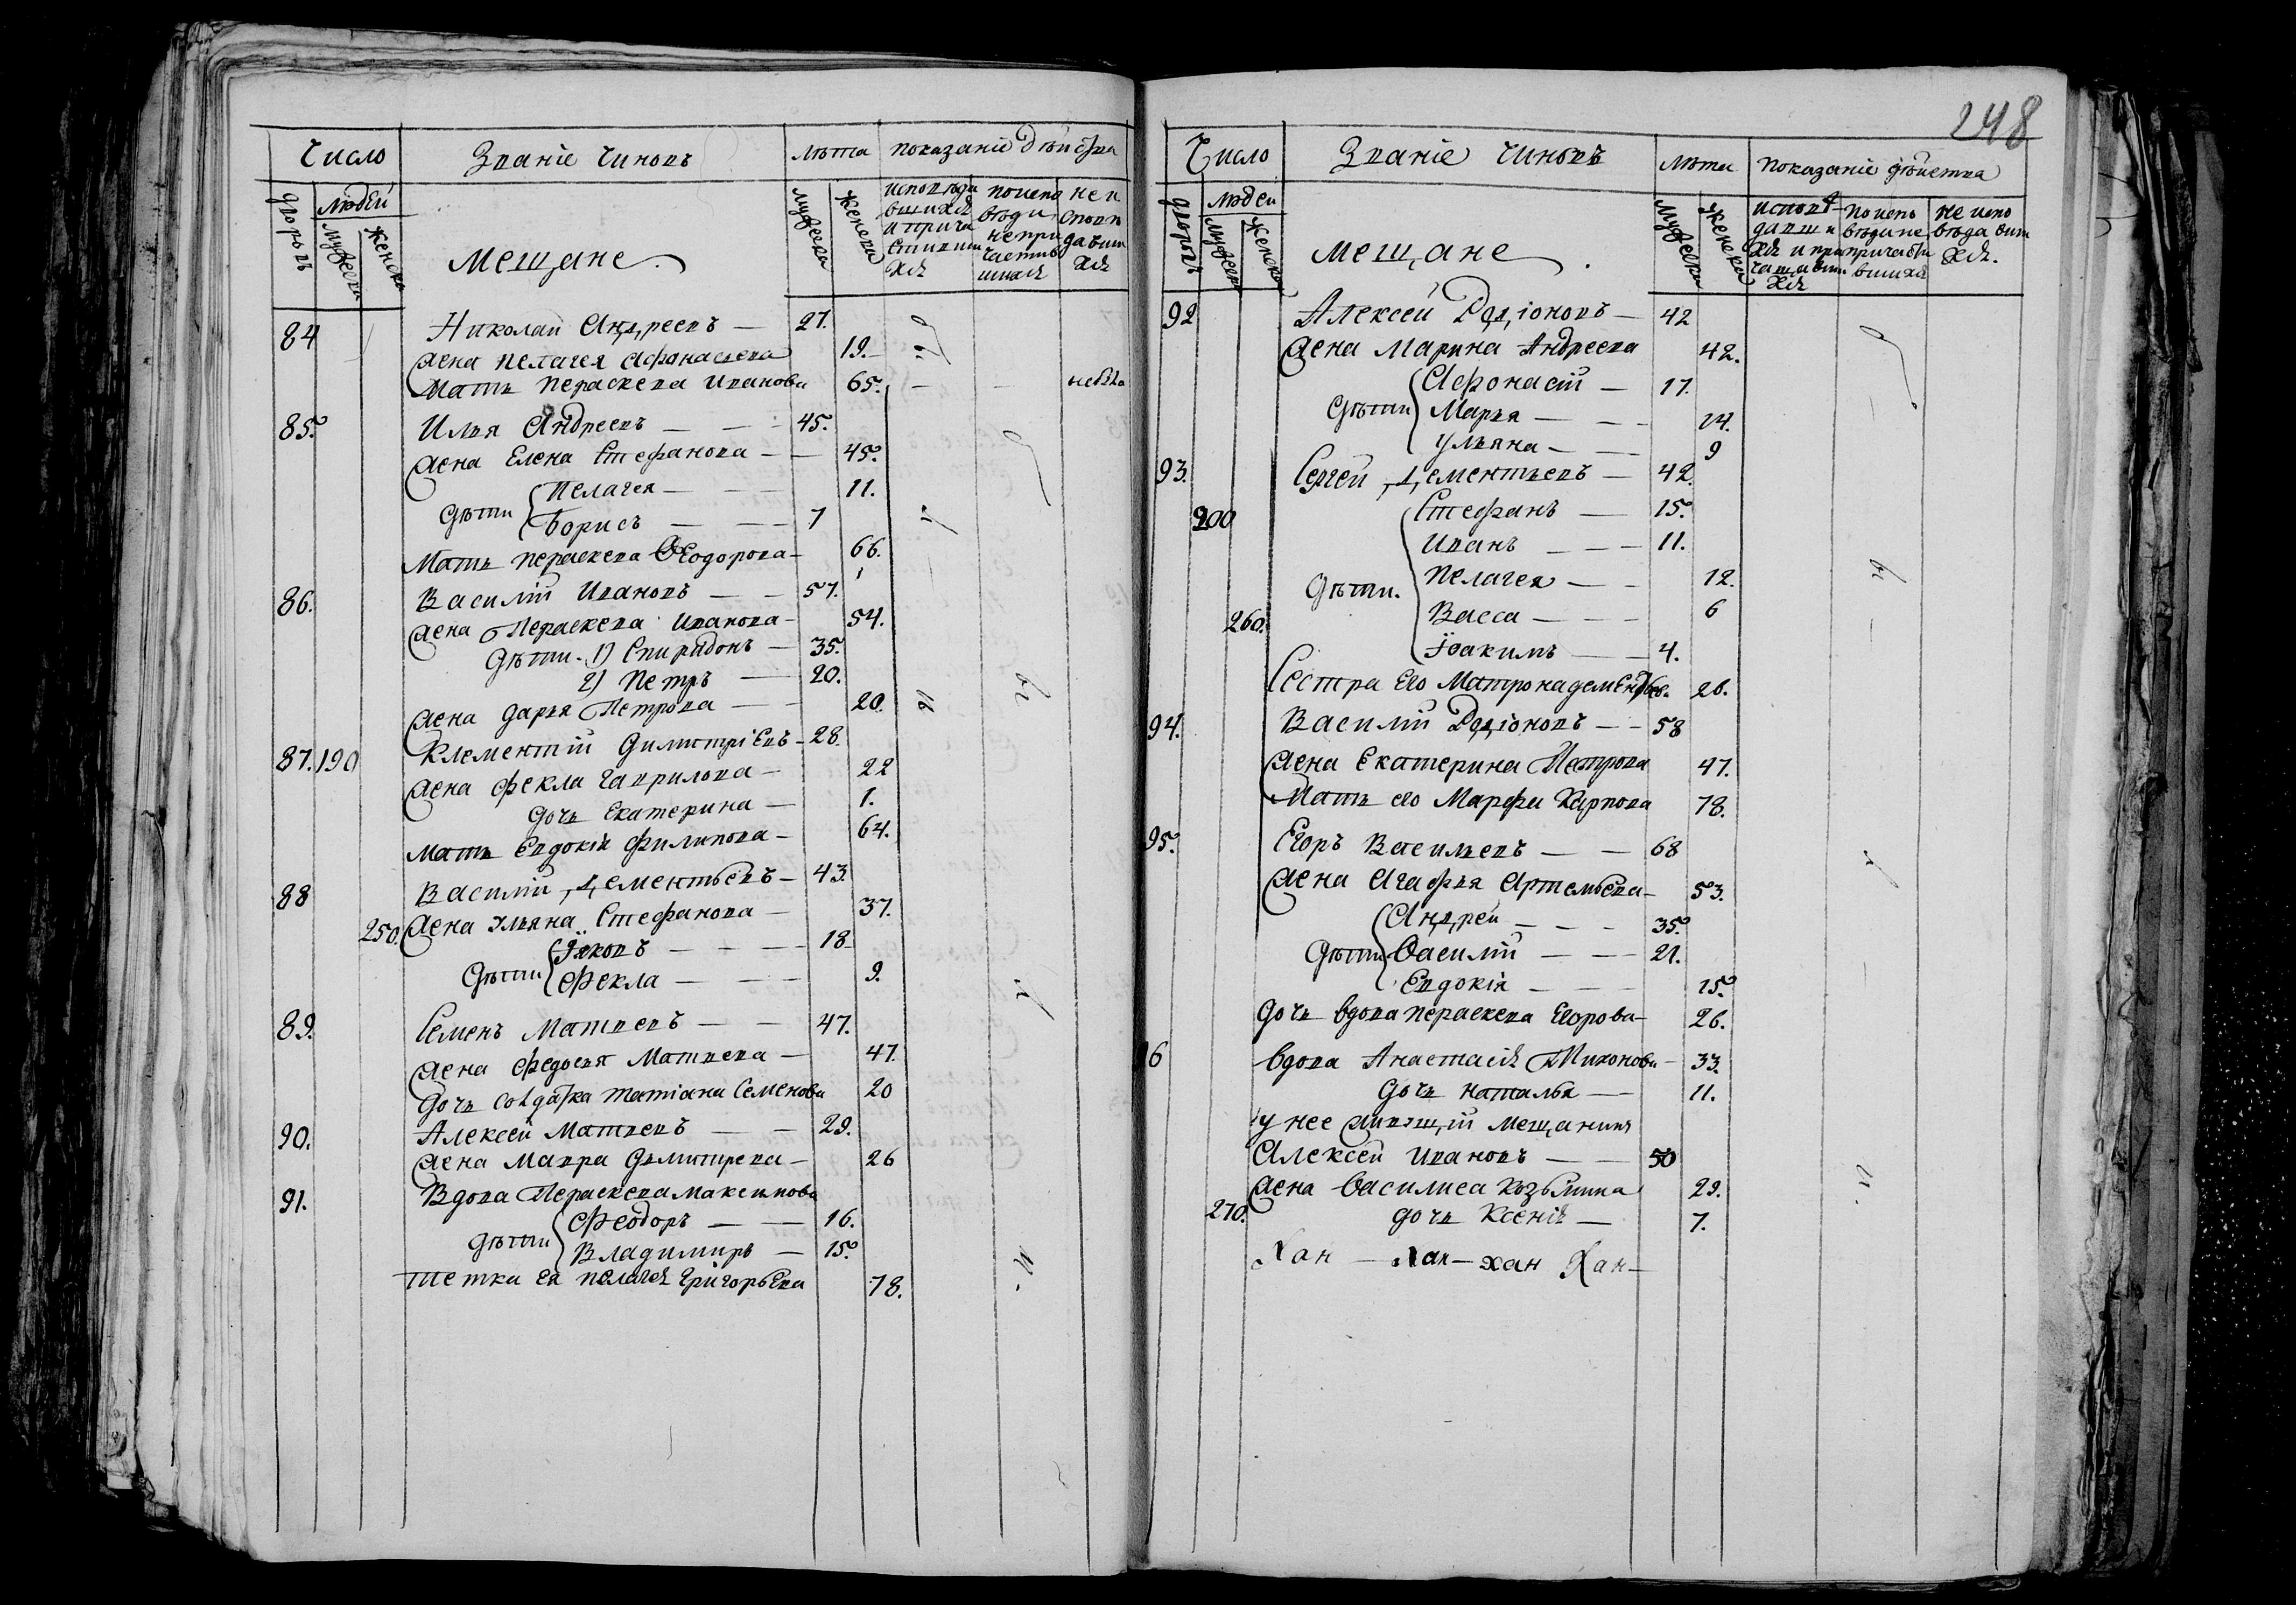 Число Званіе чиновъ Лѣта показаніе дѣйства
дворовъ людей мужеска женска мужеска женска
исповѣдавшихся и причастившихся
по исповѣди не причастившихся
не исповѣдавшихся
Мещане.
84 Николай Андреевъ — 27.
жена пелагея афонасьева 19.
Мать пераскева иванова 65. — — небыла
85. Илья Андреевъ — — 45.
жена Елена Стефанова — — 45.
дѣти пелагея — — — 11.
Борисъ — — — 7
Мать пераскева Феодорова — 66.
86. Василій Ивановъ — — 57.
жена Пераскева иванова — 54.
дѣти. 1) Спиридонъ — 35.
2) Петръ — 20.
жена дарья Петрова — — 20.
87. 190 Климентій димитріевъ — 28.
жена фекла гаврилова — 22
дочь Екатерина — 1.
мать Евдокія филипова — 64.
88 Василій Дементьевъ — 43.
250. жена ульяна Стефанова — 37.
дѣти Іяковъ — — — 18
Фекла — — — 9.
89. Семенъ Матвеевъ — — 47.
жена федосья Матвеева — 47.
дочь солдатка татіана Семенова 20
90. Алексей Матвеевъ — — 29.
жена Мавра дѣмитрева — 26
91. Вдова Пераскева максимова
дѣти Феодоръ — — 16.
Владимиръ — 15.
тетка ея пелагея Григорьева 78.
248
Число Званіе чиновъ Лѣта показаніе дѣйства
дворовъ людей мужеска женска мужеска женска
исповѣдавшихся и причащавшихся
по исповѣди не причастившихся
не исповѣдавшихся.
мещане.
92 Алексей Родіоновъ — 42
жена марина Андреева 42.
дѣти Афонасій — 17.
Марья — — — 14.
ульяна — — 9
93. Сергей Дементьевъ — 42.
200 Стефанъ — 15.
Иванъ — — — 11.
дѣти. Пелагея — — 12.
260. Васса — — — 6
Іоакимъ — — 4.
Сестра его Матрона дементьева 26.
94. Василій Родіоновъ — — 58
жена Екатерина Петрова 47.
Мать его Марфа Карпова 78.
95. Егоръ Васильевъ — — 68
жена Агафья Артемьева — 53.
дѣти Андрей — — — 35.
Василій — — — 21.
Евдокія — — — 15.
дочь вдова пераскева Егорова — 26.
6 вдова Анастасія Тихонова — 33.
дочь наталья — 11.
у нее живущій мещанинъ
Алексей Ивановъ — — 50
жена Василиса козьмина 29.
270. дочь Ксенія — 7.
Хан — Хан — хан Хан —